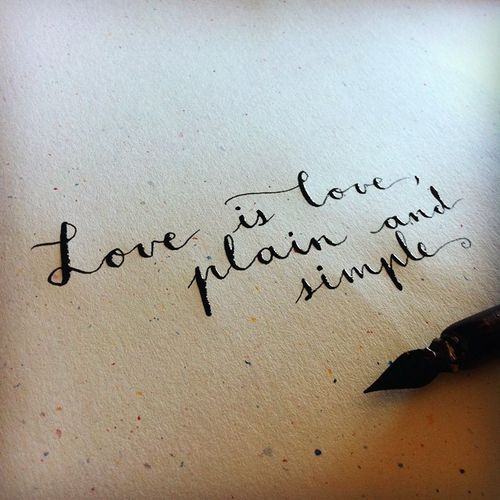 Love is love,
plain and
simple